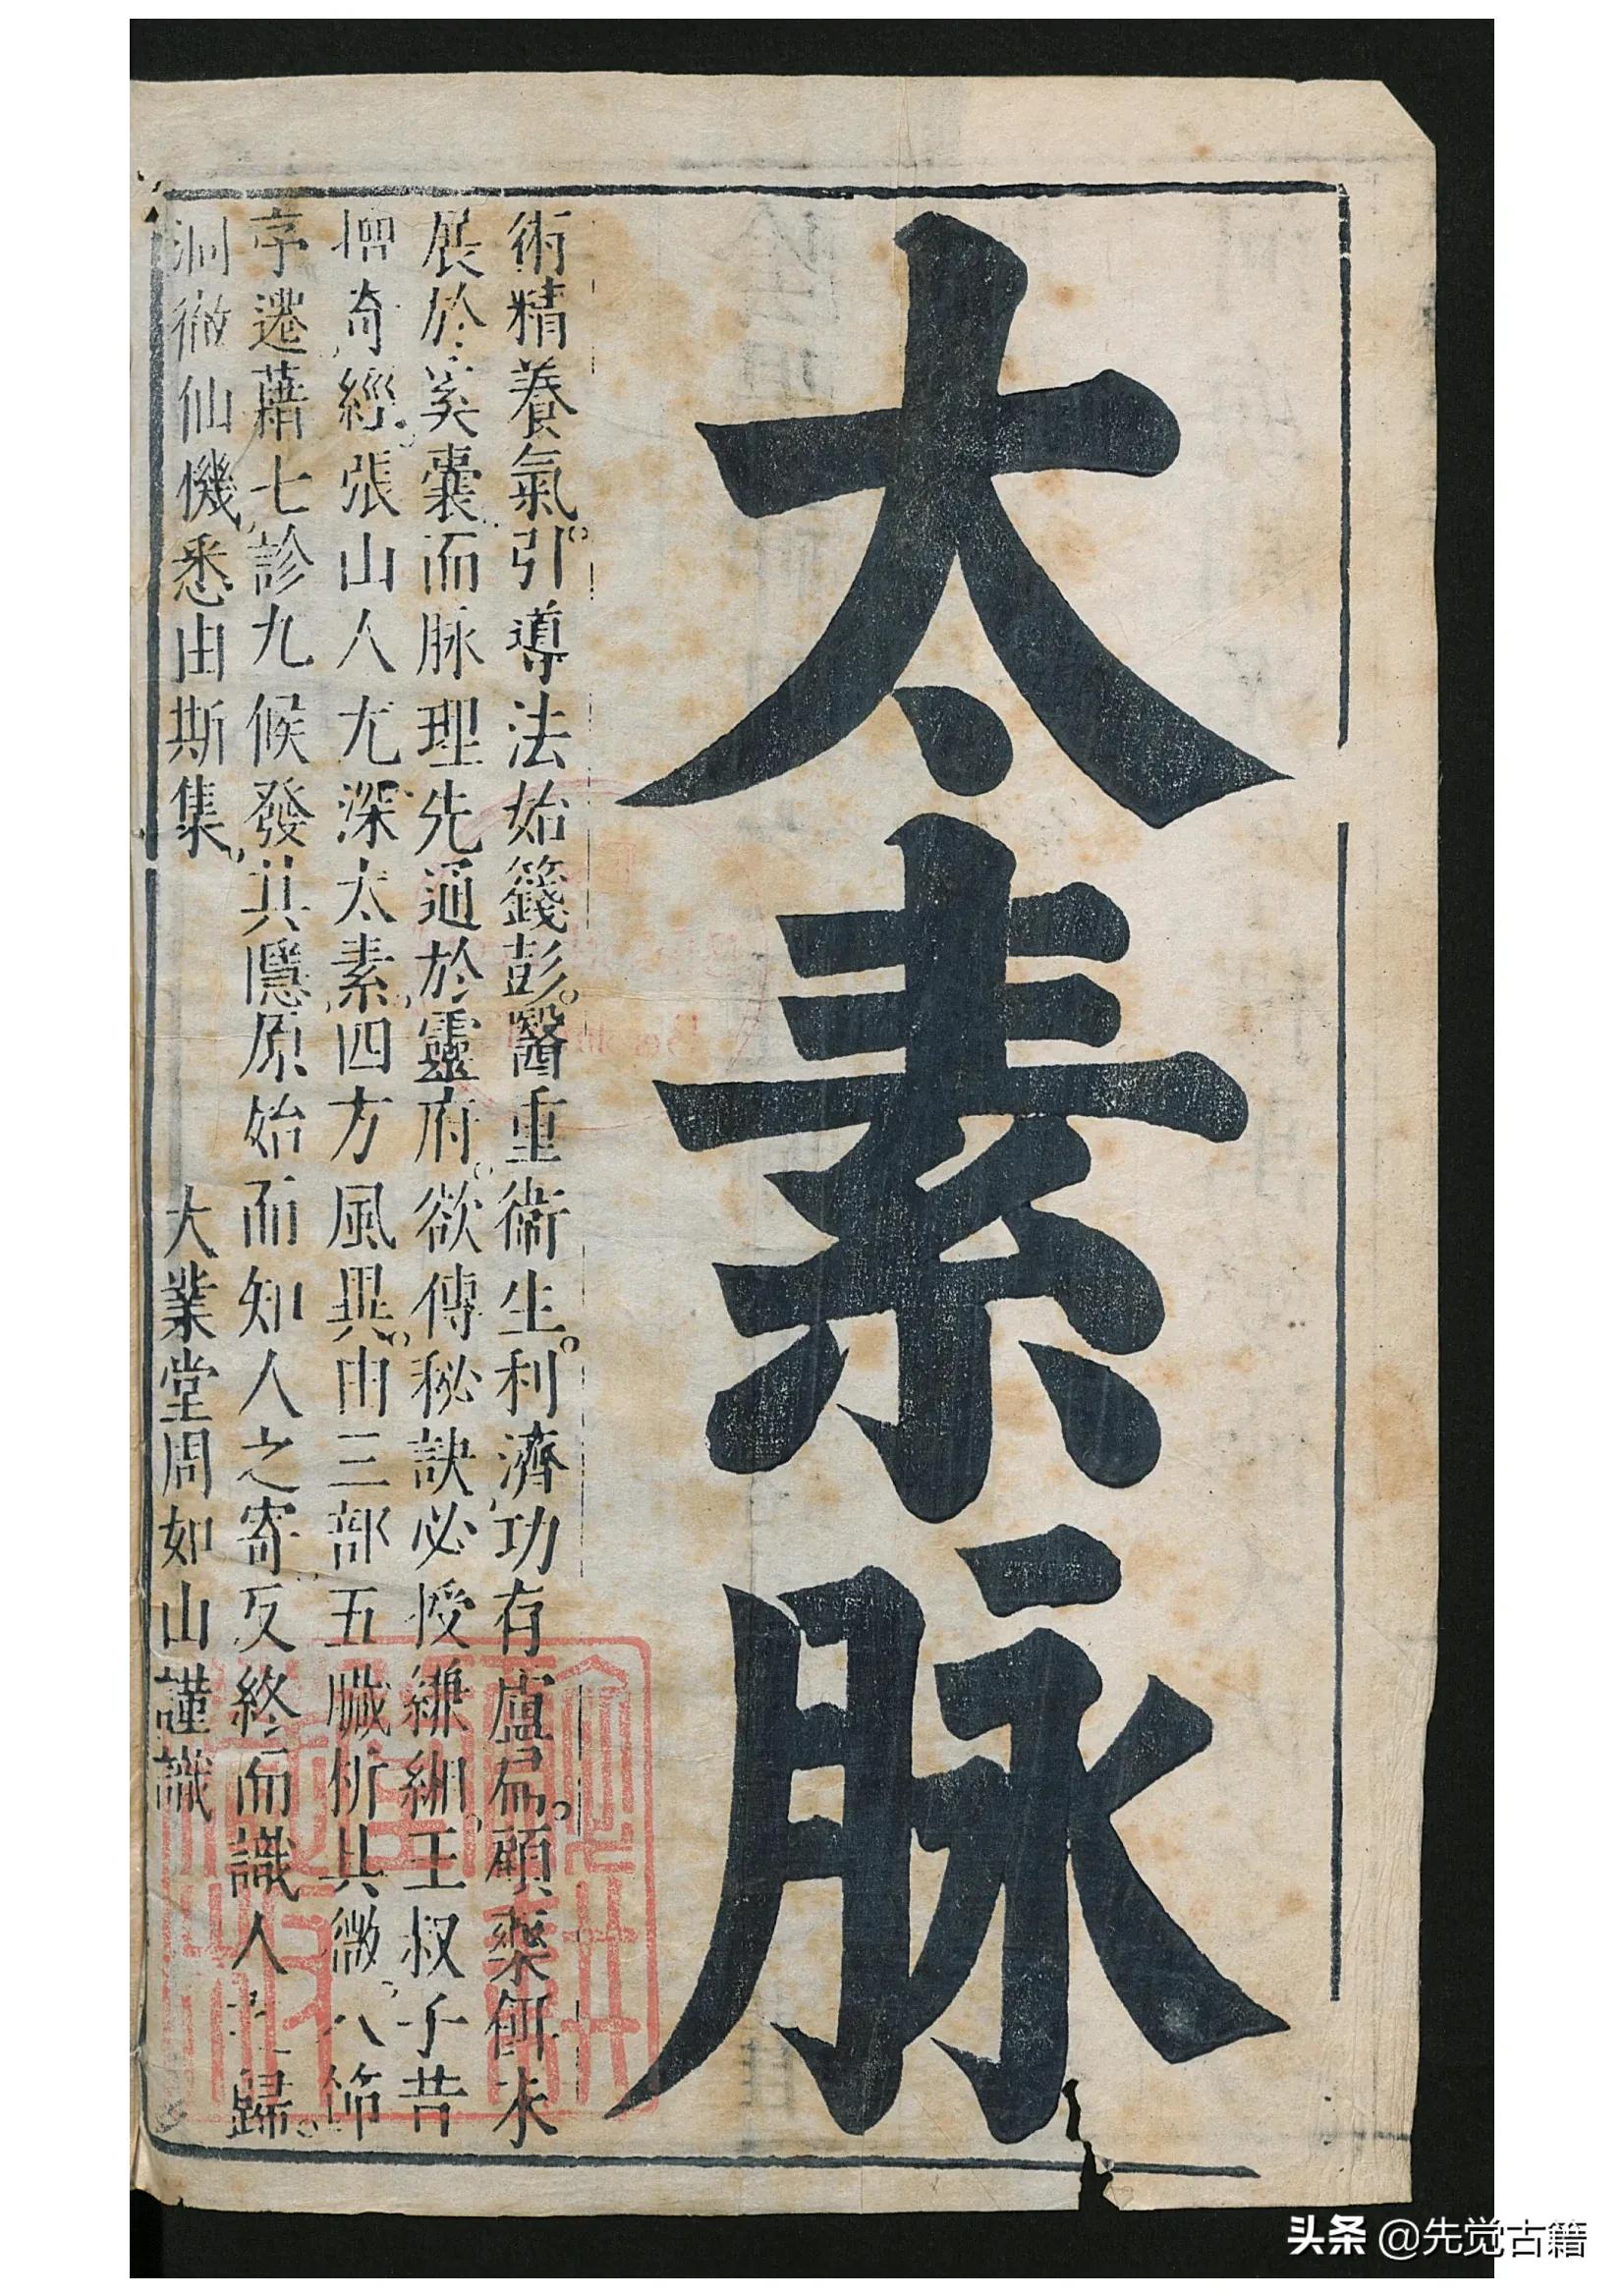 太素脉
術精養氣。引導法始籛彭。醫重衛生。利濟功有盧扁。顧藥餌未
展於奚囊、而脉理先通於靈府。欲傳秘訣、必授縑緗、王叔子昔
增奇經、張山人尤深太素、四方風異。由三部五臟析其微、八節
序遷、藉七診九候發其隱、原始而知人之寄、反終而識人歸。
洞徹仙機、悉由斯集、 大業堂周如山謹識
头条 @先觉古籍